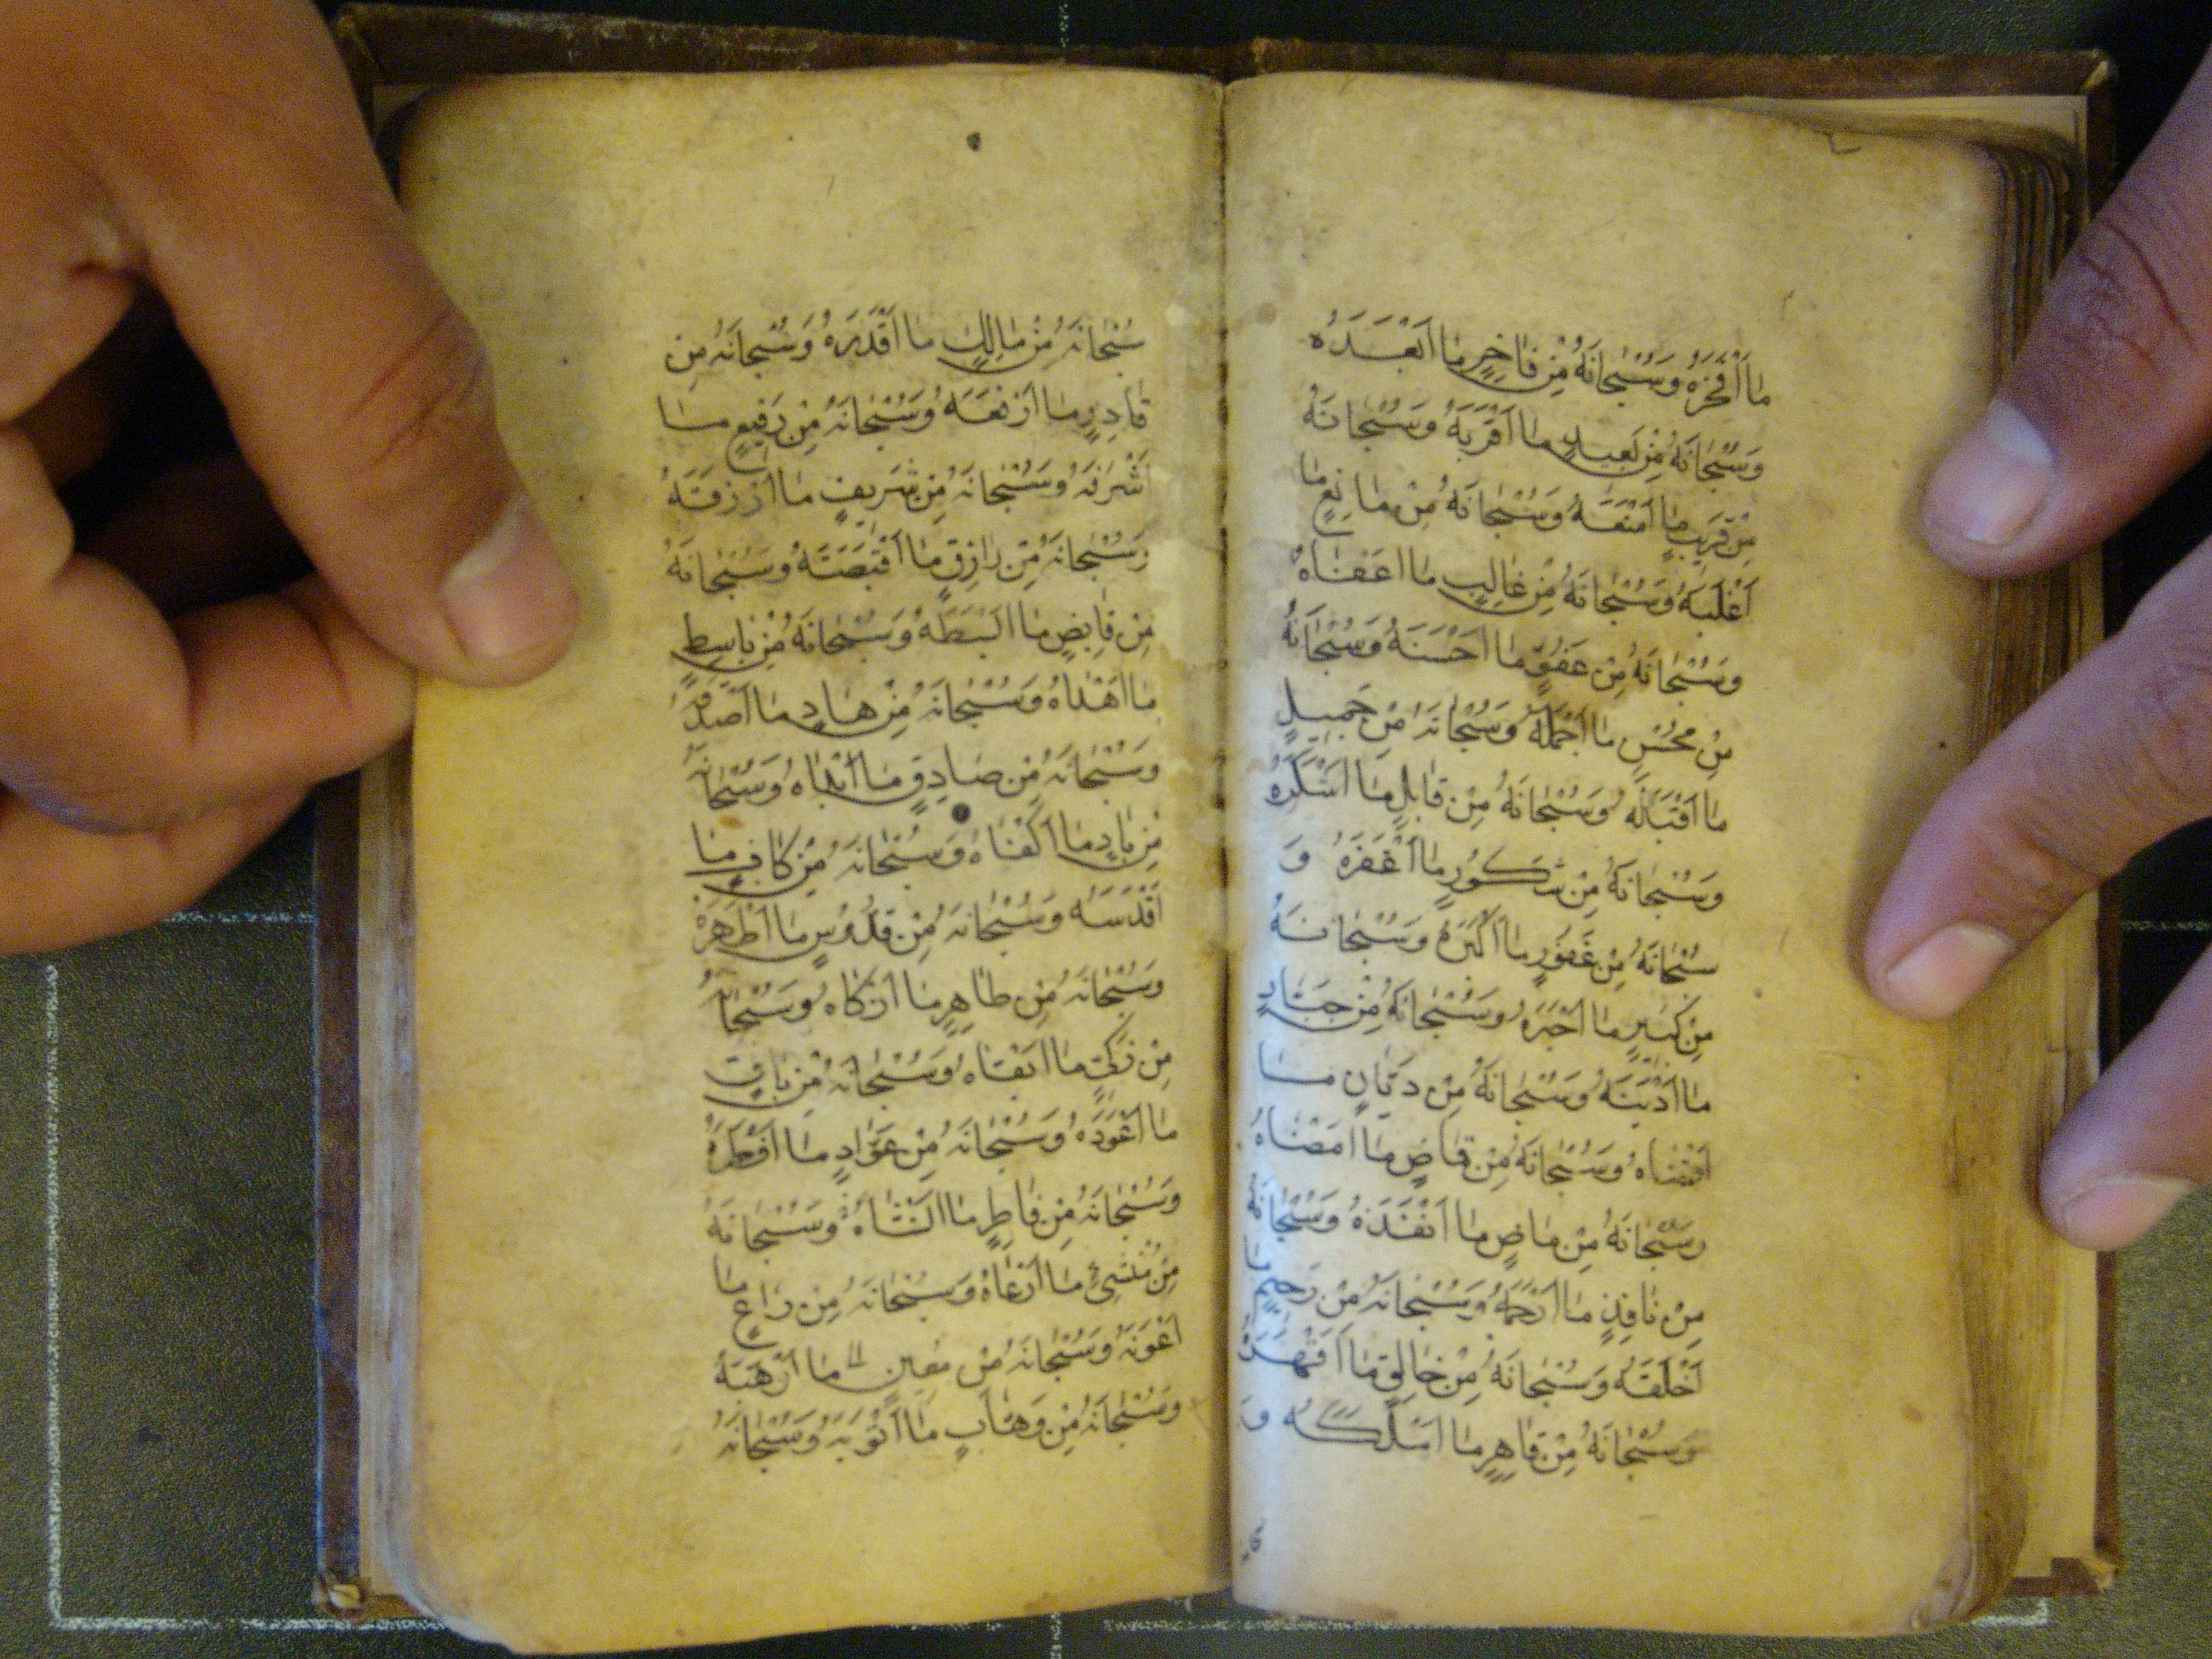 ما افخره وسبحانه من فاخر ما ابعده
وسبحانه من بعيد ما اقربه وسبحانه
من قريب ما امنعه وسبحانه من مانع ما
اغلبه وسبحانه من غالب ما اعفاه
وسبحانه من عفو ما احسنه وسبحانه
من محسن ما اجمله وسبحانه من جميل
ما اقبله وسبحانه من قابل ما اشكره
وسبحانه من شكور ما اغفره و
سبحانه من غفور ما اكبره وسبحانه
من كبير ما اجبره وسبحانه من جبار
ما ادينه وسبحانه من ديان ما
اقضاه وسبحانه من قاض ما امضاه
وسبحانه من ماض ما انفذه وسبحانه
من نافذ ما ارحمه وسبحانه من رحيم ما
اخلقه وسبحانه من خالق ما اقهره
وسبحانه من قاهر ما املكه و
سبحانه من مالك ما اقدره وسبحانه من
قادر ما ارفعه وسبحانه من رفيع ما
اشرفه وسبحانه من شريف ما ارزقه
وسبحانه من رازق ما اقبضه وسبحانه
من قابض ما ابسطه وسبحانه من باسط
ما اهداه وسبحانه من هاد ما اصدقه
وسبحانه من صادق ما ابداه وسبحانه
من باد ما اكفاه وسبحانه من كاف ما
اقدسه وسبحانه من قدوس ما اطهره
وسبحانه من طاهر ما ازكاه وسبحانه
من زكي ما ابقاه وسبحانه من باق
ما اعوده وسبحانه من عواد ما افطره
وسبحانه من فاطر ما انشاه وسبحانه
من منشئ ما ارعاه وسبحانه من راع ما
اعونه وسبحانه من معين ما اوهبه
وسبحانه من وهاب ما اتوبه وسبحانه